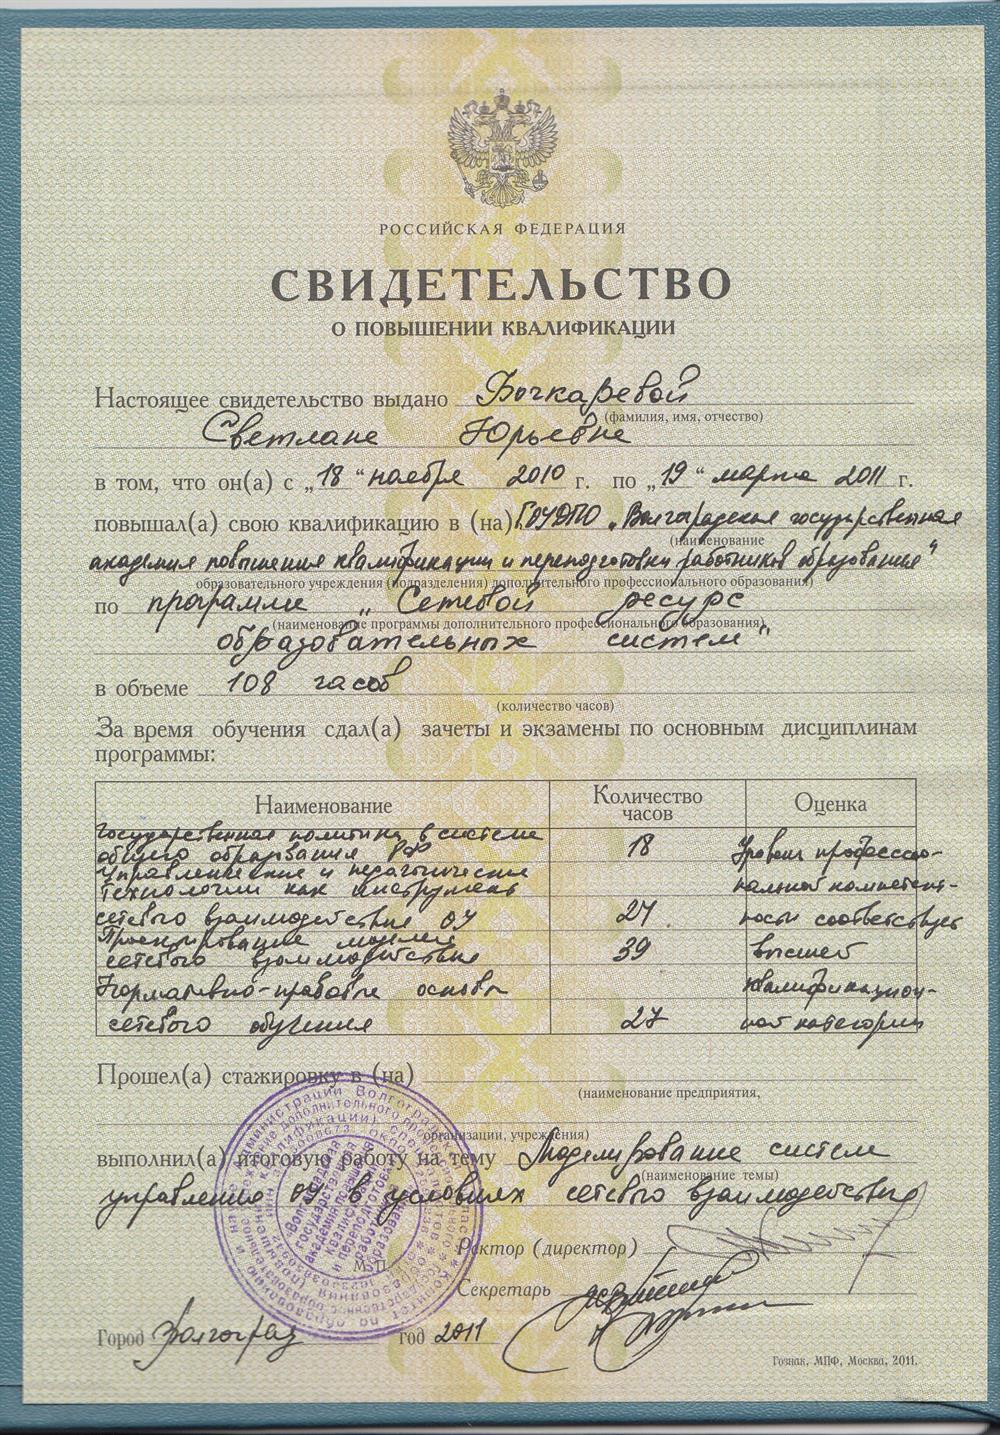 РОССИЙСКАЯ ФЕДЕРАЦИЯ
СВИДЕТЕЛЬСТВО
О ПОВЫШЕНИИ КВАЛИФИКАЦИИ
Настоящее свидетельство выдано Бочкаревой
(фамилия, имя, отчество)
Светлане Юрьевне
в том, что он(а) с „18“ ноября 2010 г. по „19“ марта 2011 г.
повышал(а) свою квалификацию в (на) ГОУДПО „Волгоградская государственная
(наименование
академия повышения квалификации и переподготовки работников образования“
образовательного учреждения (подразделения) дополнительного профессионального образования)
по программе „Сетевой ресурс
(наименование программы дополнительного профессионального образования)
образовательных систем“
в объеме 108 часов
(количество часов)
За время обучения сдал(а) зачеты и экзамены по основным дисциплинам
программы:
Наименование Количество часов Оценка
Государственная политика в системе
общего образования РФ 18 Уровень профессио-
Управленческие и педагогические
технологии как инструмент нальной компетент-
сетевого взаимодействия ОУ 27 ности соответствует
Проектирование модели
сетевого взаимодействия 39 высшей
Нормативно-правовые основы квалификацион-
сетевого обучения 27 ной категории
Прошел(а) стажировку в (на)
(наименование предприятия,
организации, учреждения)
выполнил(а) итоговую работу на тему Моделирование систем
(наименование темы)
управления ОУ в условиях сетевого взаимодействия
Ректор (директор)
М.П.
Секретарь
Город Волгоград год 2011
Гознак, МПФ, Москва, 2011.
Волгоградская
государственная
академия повышения
квалификации
и переподготовки
работников
образования